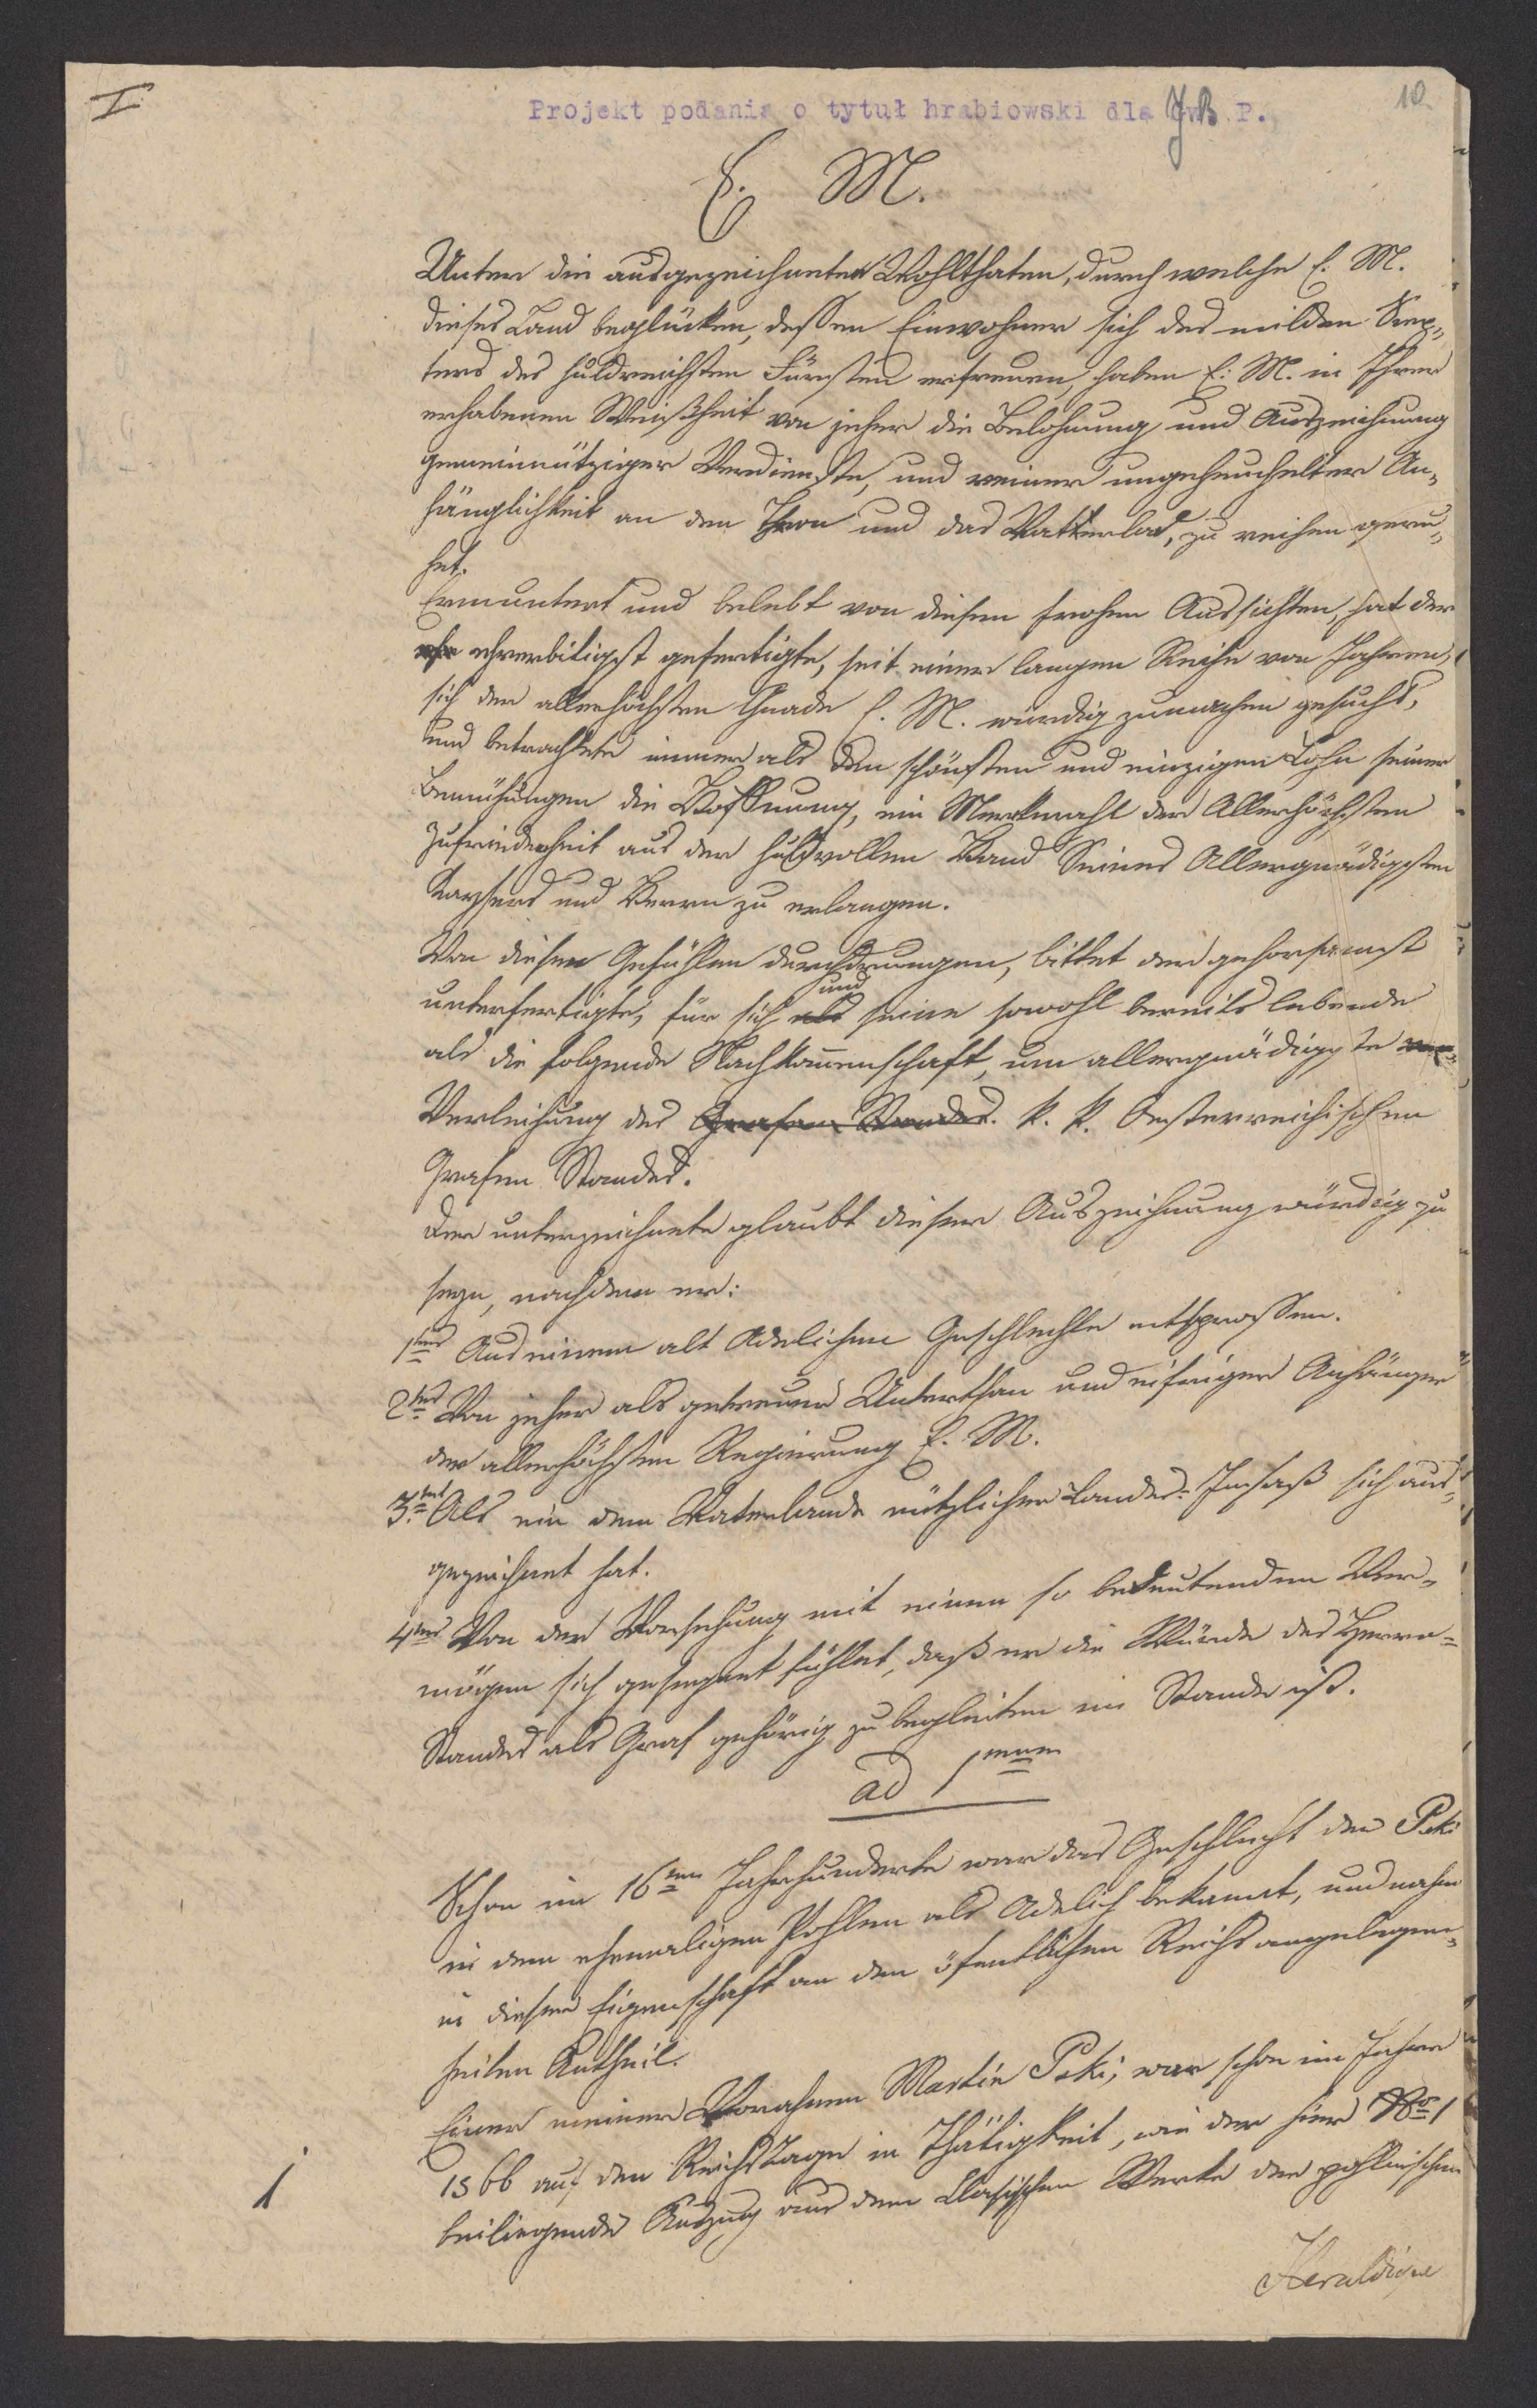 I
Projekt podania o tytuł hrabiowski dla JB. P.
10.
E. M.
Unter die ausgezeichneten Wohlthaten, durch welche E. M.
dieses Land beglücken, dessen Einwohner sich des milden Scep„
ters des huldreichsten Fürsten erfreuen, haben E. M. in Ihrer
erhabenen Weißheit von jeher die Belohnung und Auszeichnung
gemeinnütziger Verdienste, und reiner ungeheuchelter An„
hänglichkeit an den Thron und das Vatterland, zu reihen geru„
het.
Ermuntert und belebt von diesen frohen Aussichten, hat der
ehrerbietigst gefertigte, seit einer langen Reihe von Jahren,
sich der allerhöchsten Gnade E. M. würdig zumachen gesucht,
und betrachtete immer als den schönsten und einzigen Lohn seiner
Bemühungen die Hoffnung, ein Merkmahl der Allerhöchsten
Zufriedenheit aus der huldvollen Hand Seines Allergnädigsten
Kaysers und Herrn zu erlangen.
Von diesen Gefühlen durchdrungen, bittet der gehorsamst
und
unterfertigte, für sich als seine sowohl bereits lebende
als die folgende Nachkommenschaft, um allergnädigste
Verleihung des Grafen Standes. K. K. Oesterreichischen
Grafen Standes.
Der unterzeichnete glaubt dieser Auszeichnung würdig zu
seyn, nachdem er:
1tens Aus einem alt Adelichen Geschlechte entsprossen.
2tens Von jeher als getreuer Unterthan und eifriger Anhänger
der allerhöchsten Regierung E. M.
3tens Als ein dem Vaterlande nützlicher Landes-Insaß sich aus„
gezeichnet hat.
4tens Von der Vorsehung mit einem so bedeutenden Ver„
mögen sich gesegnet fühlet, daß er die Würde des Herrn=
Standes als Graf gehörig zu begleiten im Stande ist.
ad 1mum
Schon im 16ten Jahrhunderte war das Geschlecht der P.ski
in dem ehemaligen Pohlen als Adelich bekannt, und nahm
in dieser Eigenschaft an den öfentlichen Reichsangelegen„
heiten Antheil.
Einer meiner Vorahnen Martin P.ski, war schon im Jahre
1566 auf den Reichstage in Thätigkeit, wie der hier No 1
beiliegende Auszug aus dem Classischen Werke der pohlnischen
1
Heraldique